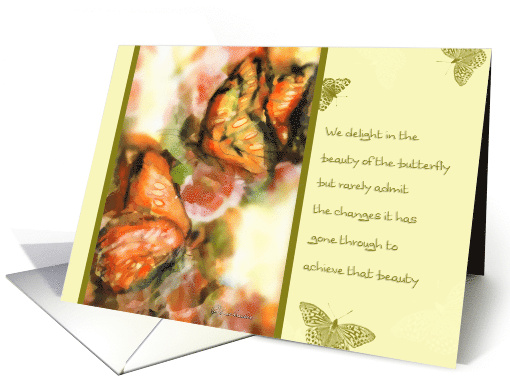 We delight in the
beauty of the butterfly
but rarely admit
the changes it has
gone through to
achieve that beauty